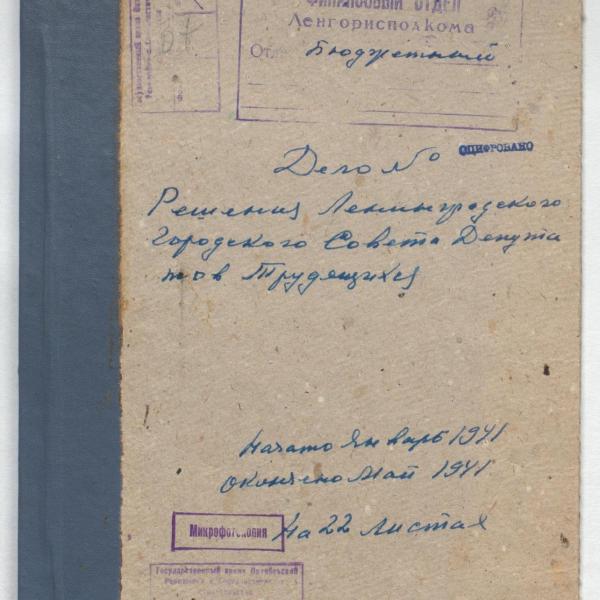 ФИНАНСОВЫЙ ОТДЕЛ
Ленгорисполкома
Отд. Бюджетный
Дело №
ОЦИФРОВАНО
Решения Ленинградского
Городского Совета Депута
тов Трудящихся
Начато Январь 1941
Окончено Май 1941
На 22 листах
Микрофотокопия
Государственный архив Октябрьской
Революции и